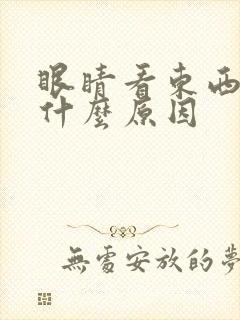 眼睛看東西
什麼原因
無處安放的夢